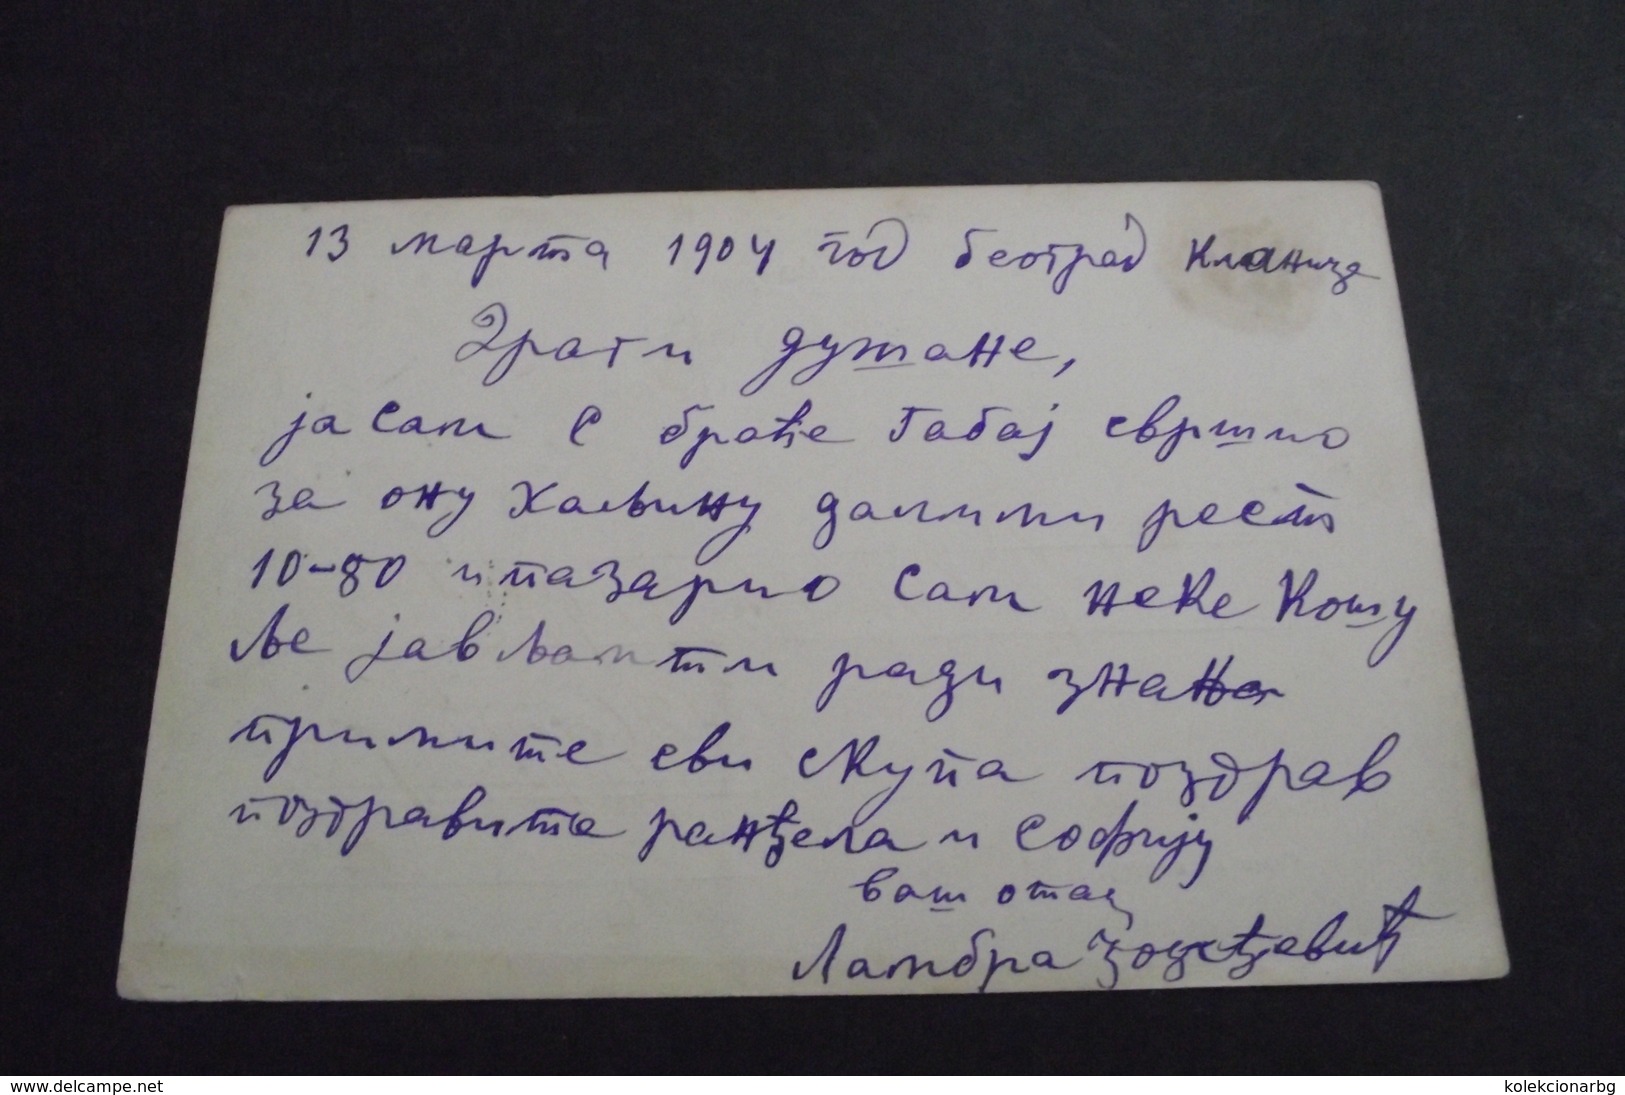 13 марта 1904 год београд Кланица
Драги душане,
ја сам с браће Габај свршио
за ону Хаљину дали ми рест
10-80 и пазарио сам неке Кошу
ље јављам ти ради знања
примите сви скупа поздрав
поздравите ранђела и Софију
ваш отац
Ламбра
www.delcampe.net
kolekcionarbg